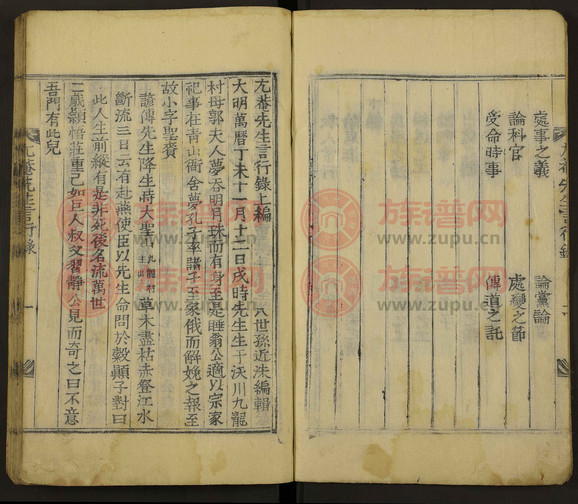 處事之義 論黨論
論科官 處變之節
受命時事 傳道之託
尤菴先生言行錄
尤菴先生言行錄上編
八世孫近洙編輯
大明萬曆丁未十一月十二日戌時先生生于沃川九龍
村母郭夫人夢呑明月珠而有身至是睡翁公適以宗家
祀事在青山衙舍夢孔子率諸子至家俄而解娩之報至
故小字聖賚
諺傳先生降生將大聖焉九龍村草木盡枯赤登江水
斷流三日云有赴燕使臣以先生命問於穀顚子對曰
此人生前縱有是非死後名流萬世
二歲穎悟莊重已如巨人叔父習靜公見而奇之曰不意
吾門有此兒
尤菴先生言行錄
一
族谱网
www.zupu.cn
族谱网
www.zupu.cn